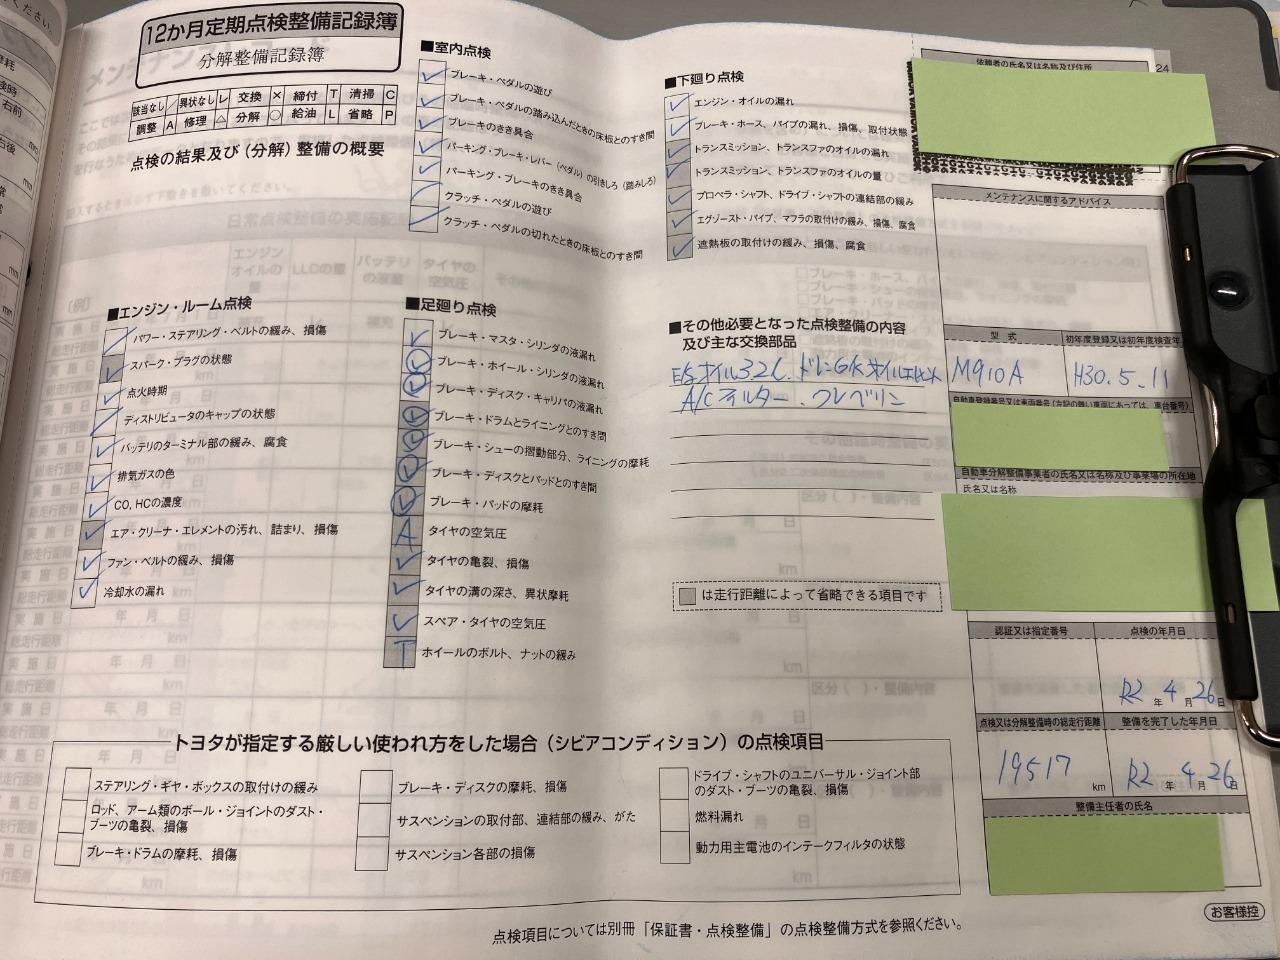 12か月定期点検整備記録簿
分解整備記録簿
該当なし / 異状なし レ 交換 × 締付 T 清掃 C
調整 A 修理 △ 分解 ○ 給油 L 省略 P
点検の結果及び(分解)整備の概要
■エンジン・ルーム点検
パワー・ステアリング・ベルトの緩み、損傷
スパーク・プラグの状態
点火時期
ディストリビュータのキャップの状態
バッテリのターミナル部の緩み、腐食
排気ガスの色
CO, HCの濃度
エア・クリーナ・エレメントの汚れ、詰まり、損傷
ファン・ベルトの緩み、損傷
冷却水の漏れ
■室内点検
ブレーキ・ペダルの遊び
ブレーキ・ペダルの踏み込んだときの床板とのすき間
ブレーキのきき具合
パーキング・ブレーキ・レバー(ペダル)の引きしろ(踏みしろ)
パーキング・ブレーキのきき具合
クラッチ・ペダルの遊び
クラッチ・ペダルの切れたときの床板とのすき間
■足廻り点検
ブレーキ・マスタ・シリンダの液漏れ
ブレーキ・ホイール・シリンダの液漏れ
ブレーキ・ディスク・キャリパの液漏れ
ブレーキ・ドラムとライニングとのすき間
ブレーキ・シューの摺動部分、ライニングの摩耗
ブレーキ・ディスクとパッドとのすき間
ブレーキ・パッドの摩耗
A タイヤの空気圧
タイヤの亀裂、損傷
タイヤの溝の深さ、異状摩耗
スペア・タイヤの空気圧
T ホイールのボルト、ナットの緩み
■下廻り点検
エンジン・オイルの漏れ
ブレーキ・ホース、パイプの漏れ、損傷、取付状態
トランスミッション、トランスファのオイルの漏れ
トランスミッション、トランスファのオイルの量
プロペラ・シャフト、ドライブ・シャフトの連結部の緩み
エグゾースト・パイプ、マフラの取付けの緩み、損傷、腐食
遮熱板の取付けの緩み、損傷、腐食
■その他必要となった点検整備の内容
及び主な交換部品
オイル3.2L、ドレンG/K オイルエレメント
A/Cフィルター、クレベリン
は走行距離によって省略できる項目です
依頼者の氏名又は名称及び住所
24
メンテナンスに関するアドバイス
型式
初年度登録又は初年度検査年
M910A
H30.5.11
自動車登録番号又は車両番号(左記の無い車両にあっては、車台番号)
自動車分解整備事業者の氏名又は名称及び事業場の所在地
氏名又は名称
認証又は指定番号
点検の年月日
R2年4月26日
点検又は分解整備時の総走行距離
整備を完了した年月日
19517 km
R2年4月26日
整備主任者の氏名
トヨタが指定する厳しい使われ方をした場合(シビアコンディション)の点検項目
ステアリング・ギヤ・ボックスの取付けの緩み
ロッド、アーム類のボール・ジョイントのダスト・
ブーツの亀裂、損傷
ブレーキ・ドラムの摩耗、損傷
ブレーキ・ディスクの摩耗、損傷
サスペンションの取付部、連結部の緩み、がた
サスペンション各部の損傷
ドライブ・シャフトのユニバーサル・ジョイント部
のダスト・ブーツの亀裂、損傷
燃料漏れ
動力用主電池のインテークフィルタの状態
点検項目については別冊「保証書・点検整備」の点検整備方式を参照ください。
お客様控